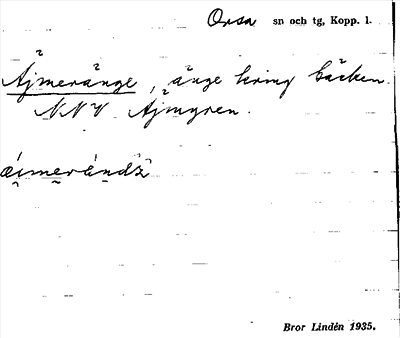 Orsa sn och tg, Kopp. l.
Äjmeränge, änge kring bäcken
NNV Äjmyren.
Bror Lindén 1935.